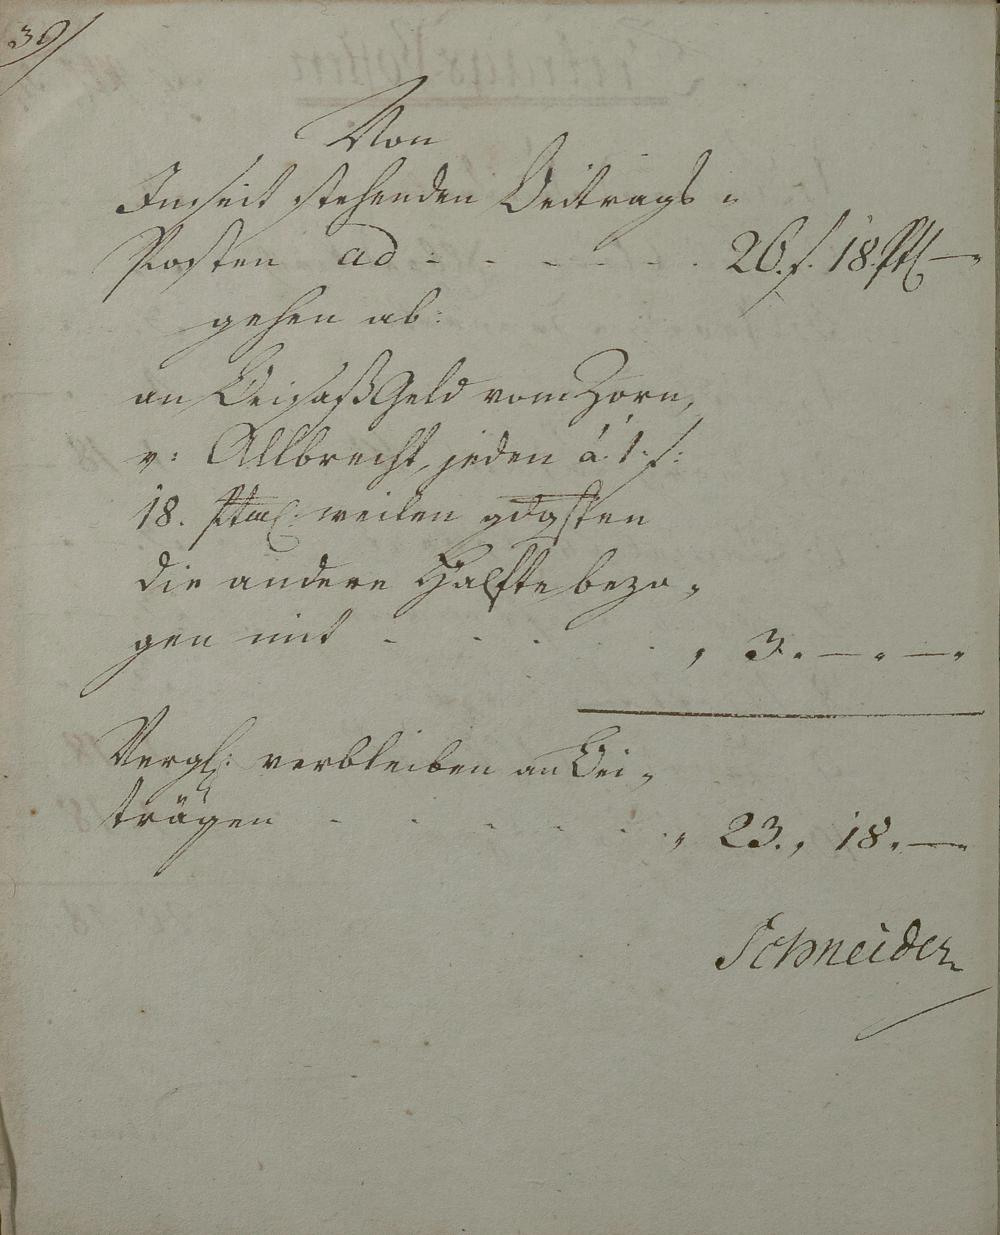 39
Von
Inseit stehenden Beitrags-
Posten ad - - - - - . 26. f. 18. Stl —
gehen ab:
an Beisaß Geld vom Zorn,
v: Allbrecht, jeden á 1: f:
18. weilen gdgsten
die andere Hälfte bezo-
gen mit - - - . , 3. — . — .
Vergl: verbleiben an Bei-
trägen - . - . - . . . , 23. , 18. —
Schneider